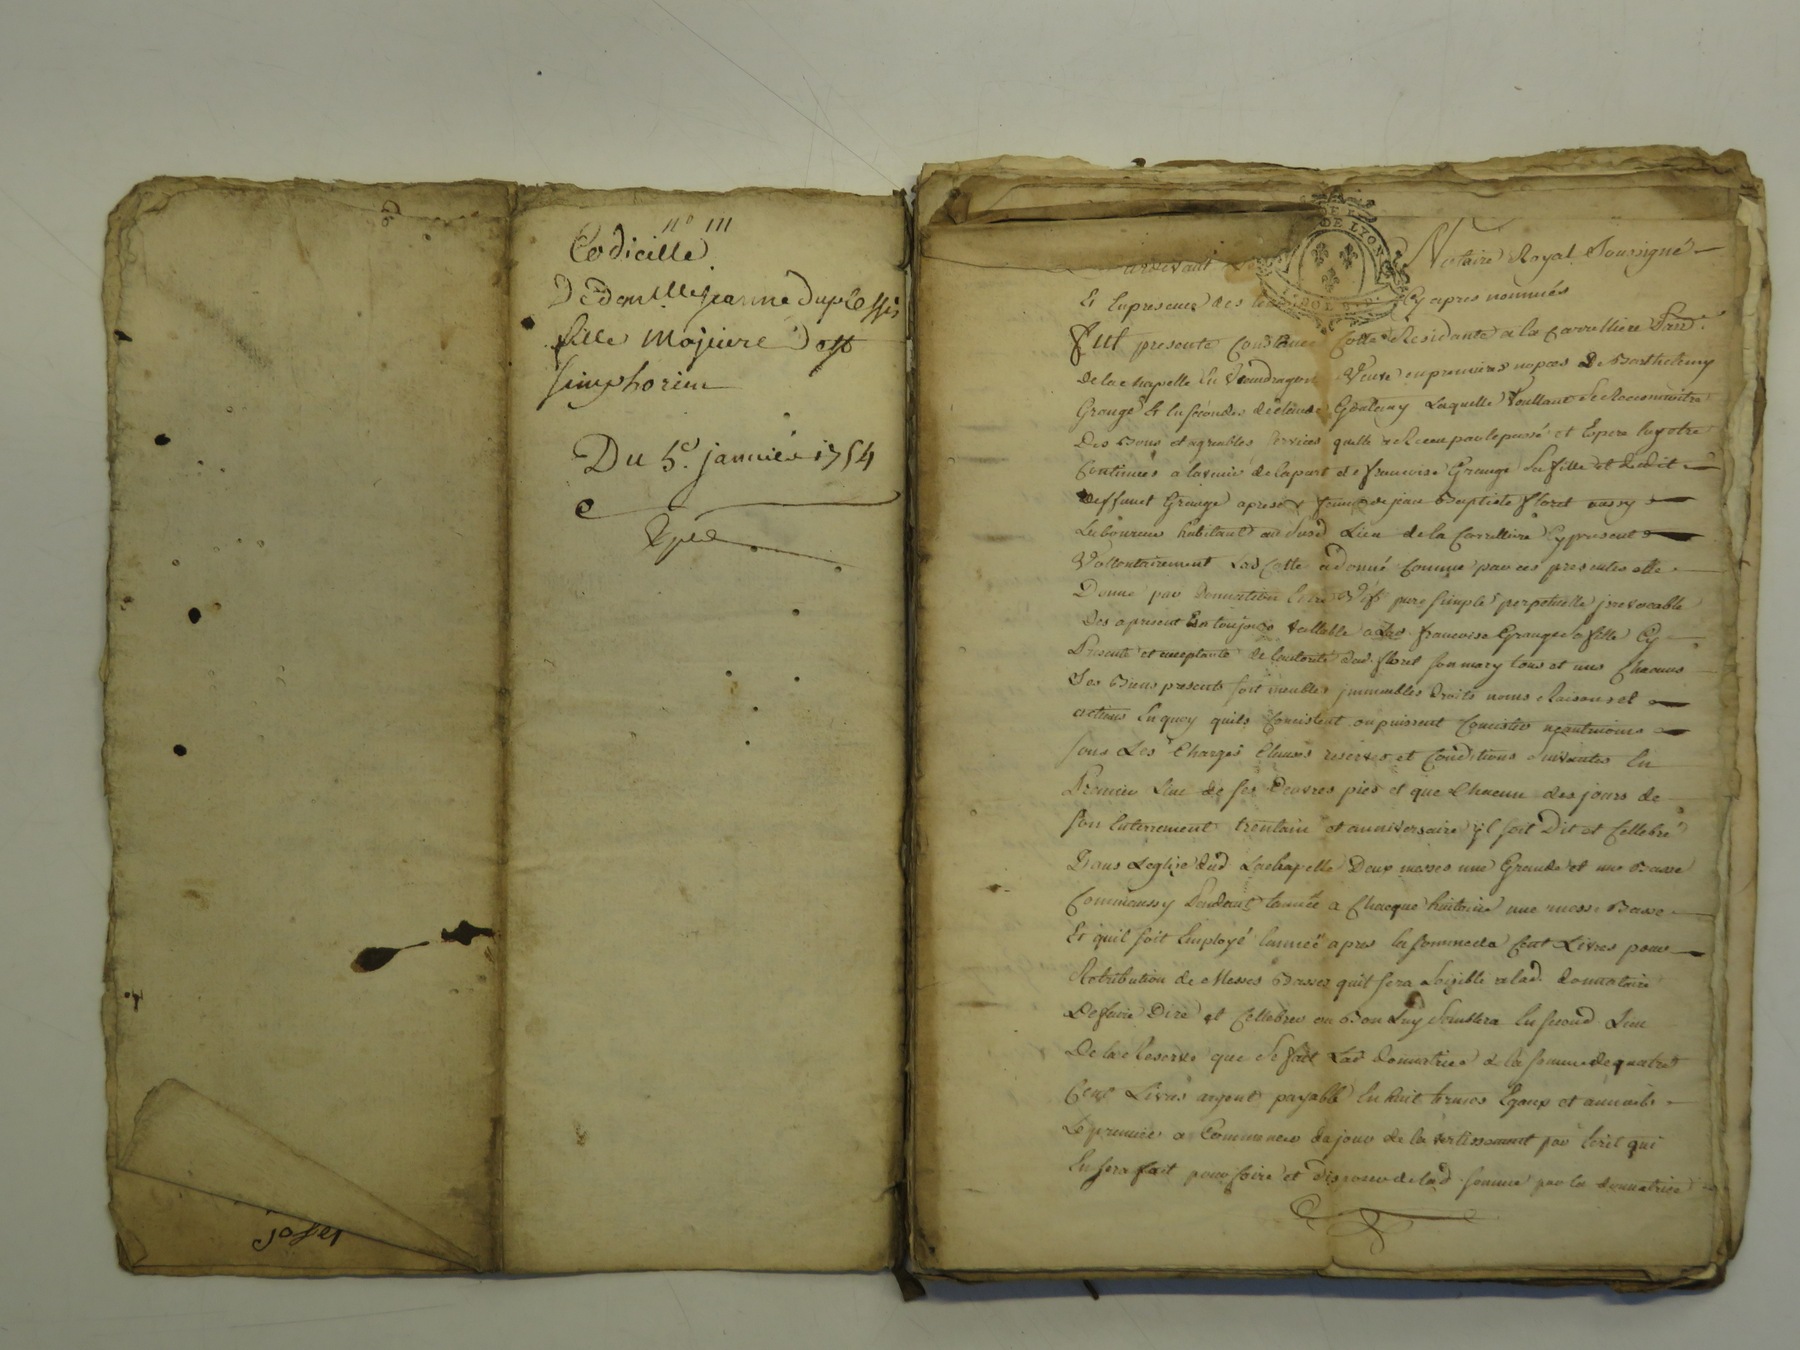 n° 111
Codicille
De demlle jeanne duplessis
fille Majeure de st
simphorien
Du 5e. janvier 1754
Expéd
josep
DE LYON
Pardevant Notaire Royal Soussigné
Et En presence des temoins Cy apres nommés
Fut presente Constance Cotte Residante a la Carrelliere parr.
de la chapelle En Vaudragon Veuve en premieres nopces de Barthelemy
Grange Et En secondes de claude Gonteray Laquelle Voullant Se Reconnoitre
Des Bons et agreables Services quelle a Receu par le passé et Espere luy etre
Continués a lavenir de la part de francoise Grange Sa fille et dudit
deffunct Grange apresent femme de jean Baptiste floret aussy
Laboureur habitant audusd. Lieu de la Carrelliere Cy present
Vollontairement Lad. Cotte a donné Comme par ces presentes elle
Donne par donnation Entre Vifs pure simple perpetuelle jrrevocable
Des apresent Et a toujours vallable a Lad. francoise Grange Sa fille Cy
Presente et acceptante de lautorité dud. floret son mary tous et uns Chacuns
Ses Biens presents soit meubles jmmeubles Droits noms Raisons et
actions En quoy quils Consistent ou puissent Consister neantmoins
sous Les Charges Clauses reserves et Conditions suivantes En
Premier Lieu de ses Oeuvres pies et que Chacun des jours de
son Enterrement trentain et anniversaire jl soit Dit et Cellebré
Dans Leglise dud. Lachapelle Deux messes une Grande et une Basse
Comm'aussy Pendant lannée a Chacque huitaine une messe Basse
Et quil soit Employé lannée apres la somme de Cent Livres pour
Retribution de Messes Basses quil sera Loizible a lad. donnataire
De faire Dire et Cellebrer ou Bon Luy Semblera En second Lieu
De la Reserve que Se fait Lad. donnatrice de la somme de quatre
Cent Livres argent payable En huit termes Egaux et annuels
Le premier a Commencer du jour de lavertissement par Ecrit qui
En sera fait pour faire et disposer de lad. somme par la donnatrice